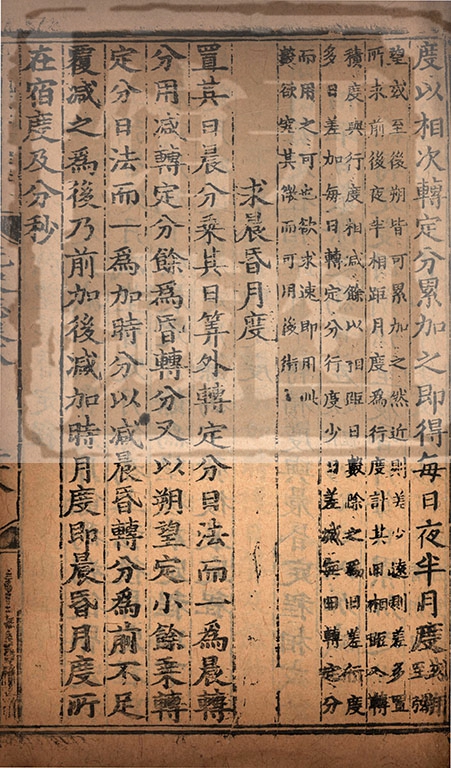 度以相次轉定分累加之即得每日夜半月度或朔至弦
望或至後朔皆可累加之然近則差少遠則差多置
所求前後夜半相距月度為行度計其日相距入轉
積度與行度相减餘以相距日數除之為日差行度
多日差加每日轉定分行度少日差减每日轉定分
而用之可也欲求速即用此
數欲究其微而可用後術
求晨昏月度
置其日晨分乘其日筭外轉定分日法而一為晨轉
分用减轉定分餘為昏轉分又以朔望定小餘乘轉
定分日法而一為加時分以减晨昏轉分為前不足
覆减之為後乃前加後减加時月度即晨昏月度所
在宿度及分秒